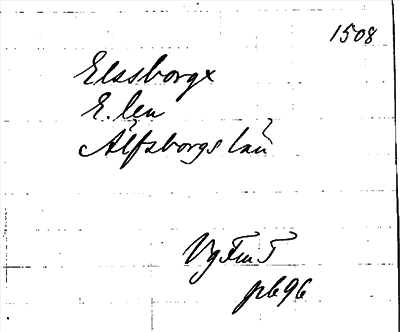 1508
Elssborgx
E. len
Älfsborgs län
VgFmT
p696